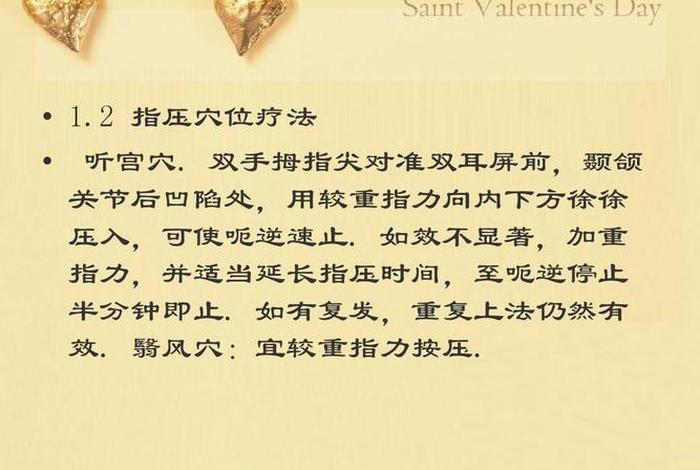 Saint Valentine's Day
• 1.2 指压穴位疗法
• 听宫穴. 双手拇指尖对准双耳屏前, 颞颌
关节后凹陷处, 用较重指力向内下方徐徐
压入, 可使呃逆速止. 如效不显著, 加重
指力, 并适当延长指压时间, 至呃逆停止
半分钟即止. 如有复发, 重复上法仍然有
效. 翳风穴: 宜较重指力按压.